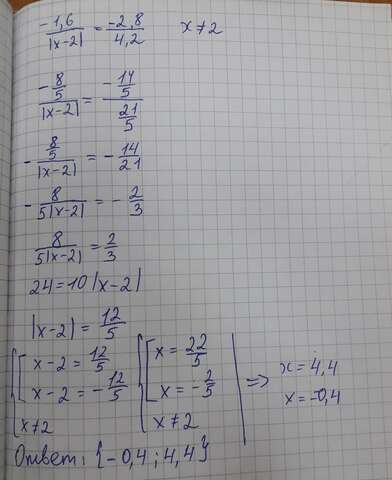 -1,6/|x-2| = -2,8/4,2   x≠2
-8/5/|x-2| = -14/5/21/5
-8/5/|x-2| = -14/21
-8/5|x-2| = -2/3
8/5|x-2| = 2/3
24=10|x-2|
|x-2| = 12/5
{[x-2=12/5   {[x=22/5   => x=4,4
x-2=-12/5   x=-2/5   x=-0,4
x≠2   x≠2
Ответ: {-0,4; 4,4}